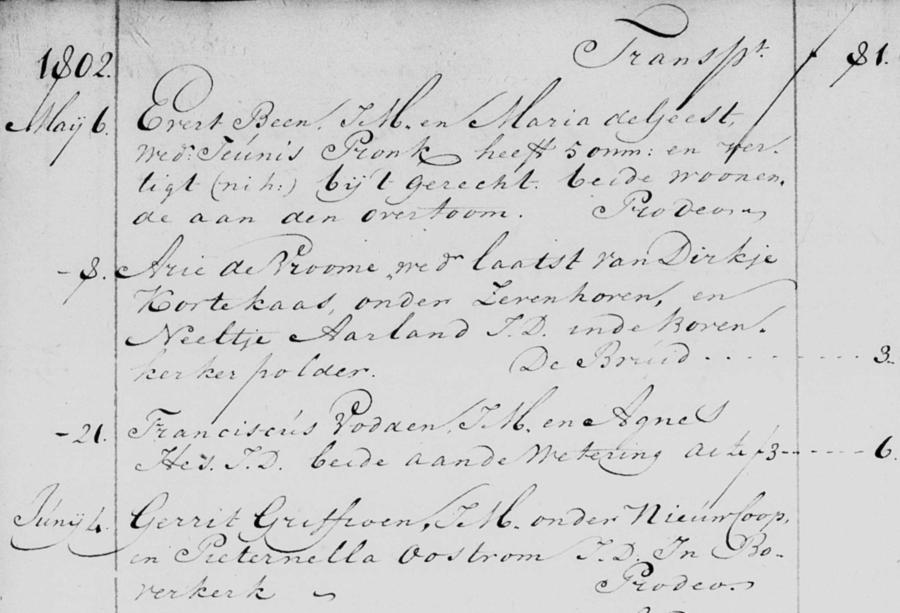 1802. Transpt. 81.
Maij 6. Evert Been. J.M. en Maria de Geest,
wed: Teúnis Pronk heeft 5 onm: en ver-
tigt (nih:) bij 't gerecht. beide woonen.
de aan den overtoom. Prodeo
- 8. Arie de Vroome wedr laatst van Dirkje
Kortekaas, onder Zevenhoven, en
Neeltje Aarland J.D. in de Boven.
kerkerpolder. De Brúid ......... 3.
- 21. Franciscús Vodden. J.M. en Agnes
Hes. J.D. beide aan de Wetering acte f3 ------ 6.
Júnij 4. Gerrit Griffioen, J.M. onder Nieúwcoop.
en Pieternella Oostrom J.D. In Bo-
verkerk Prodeo